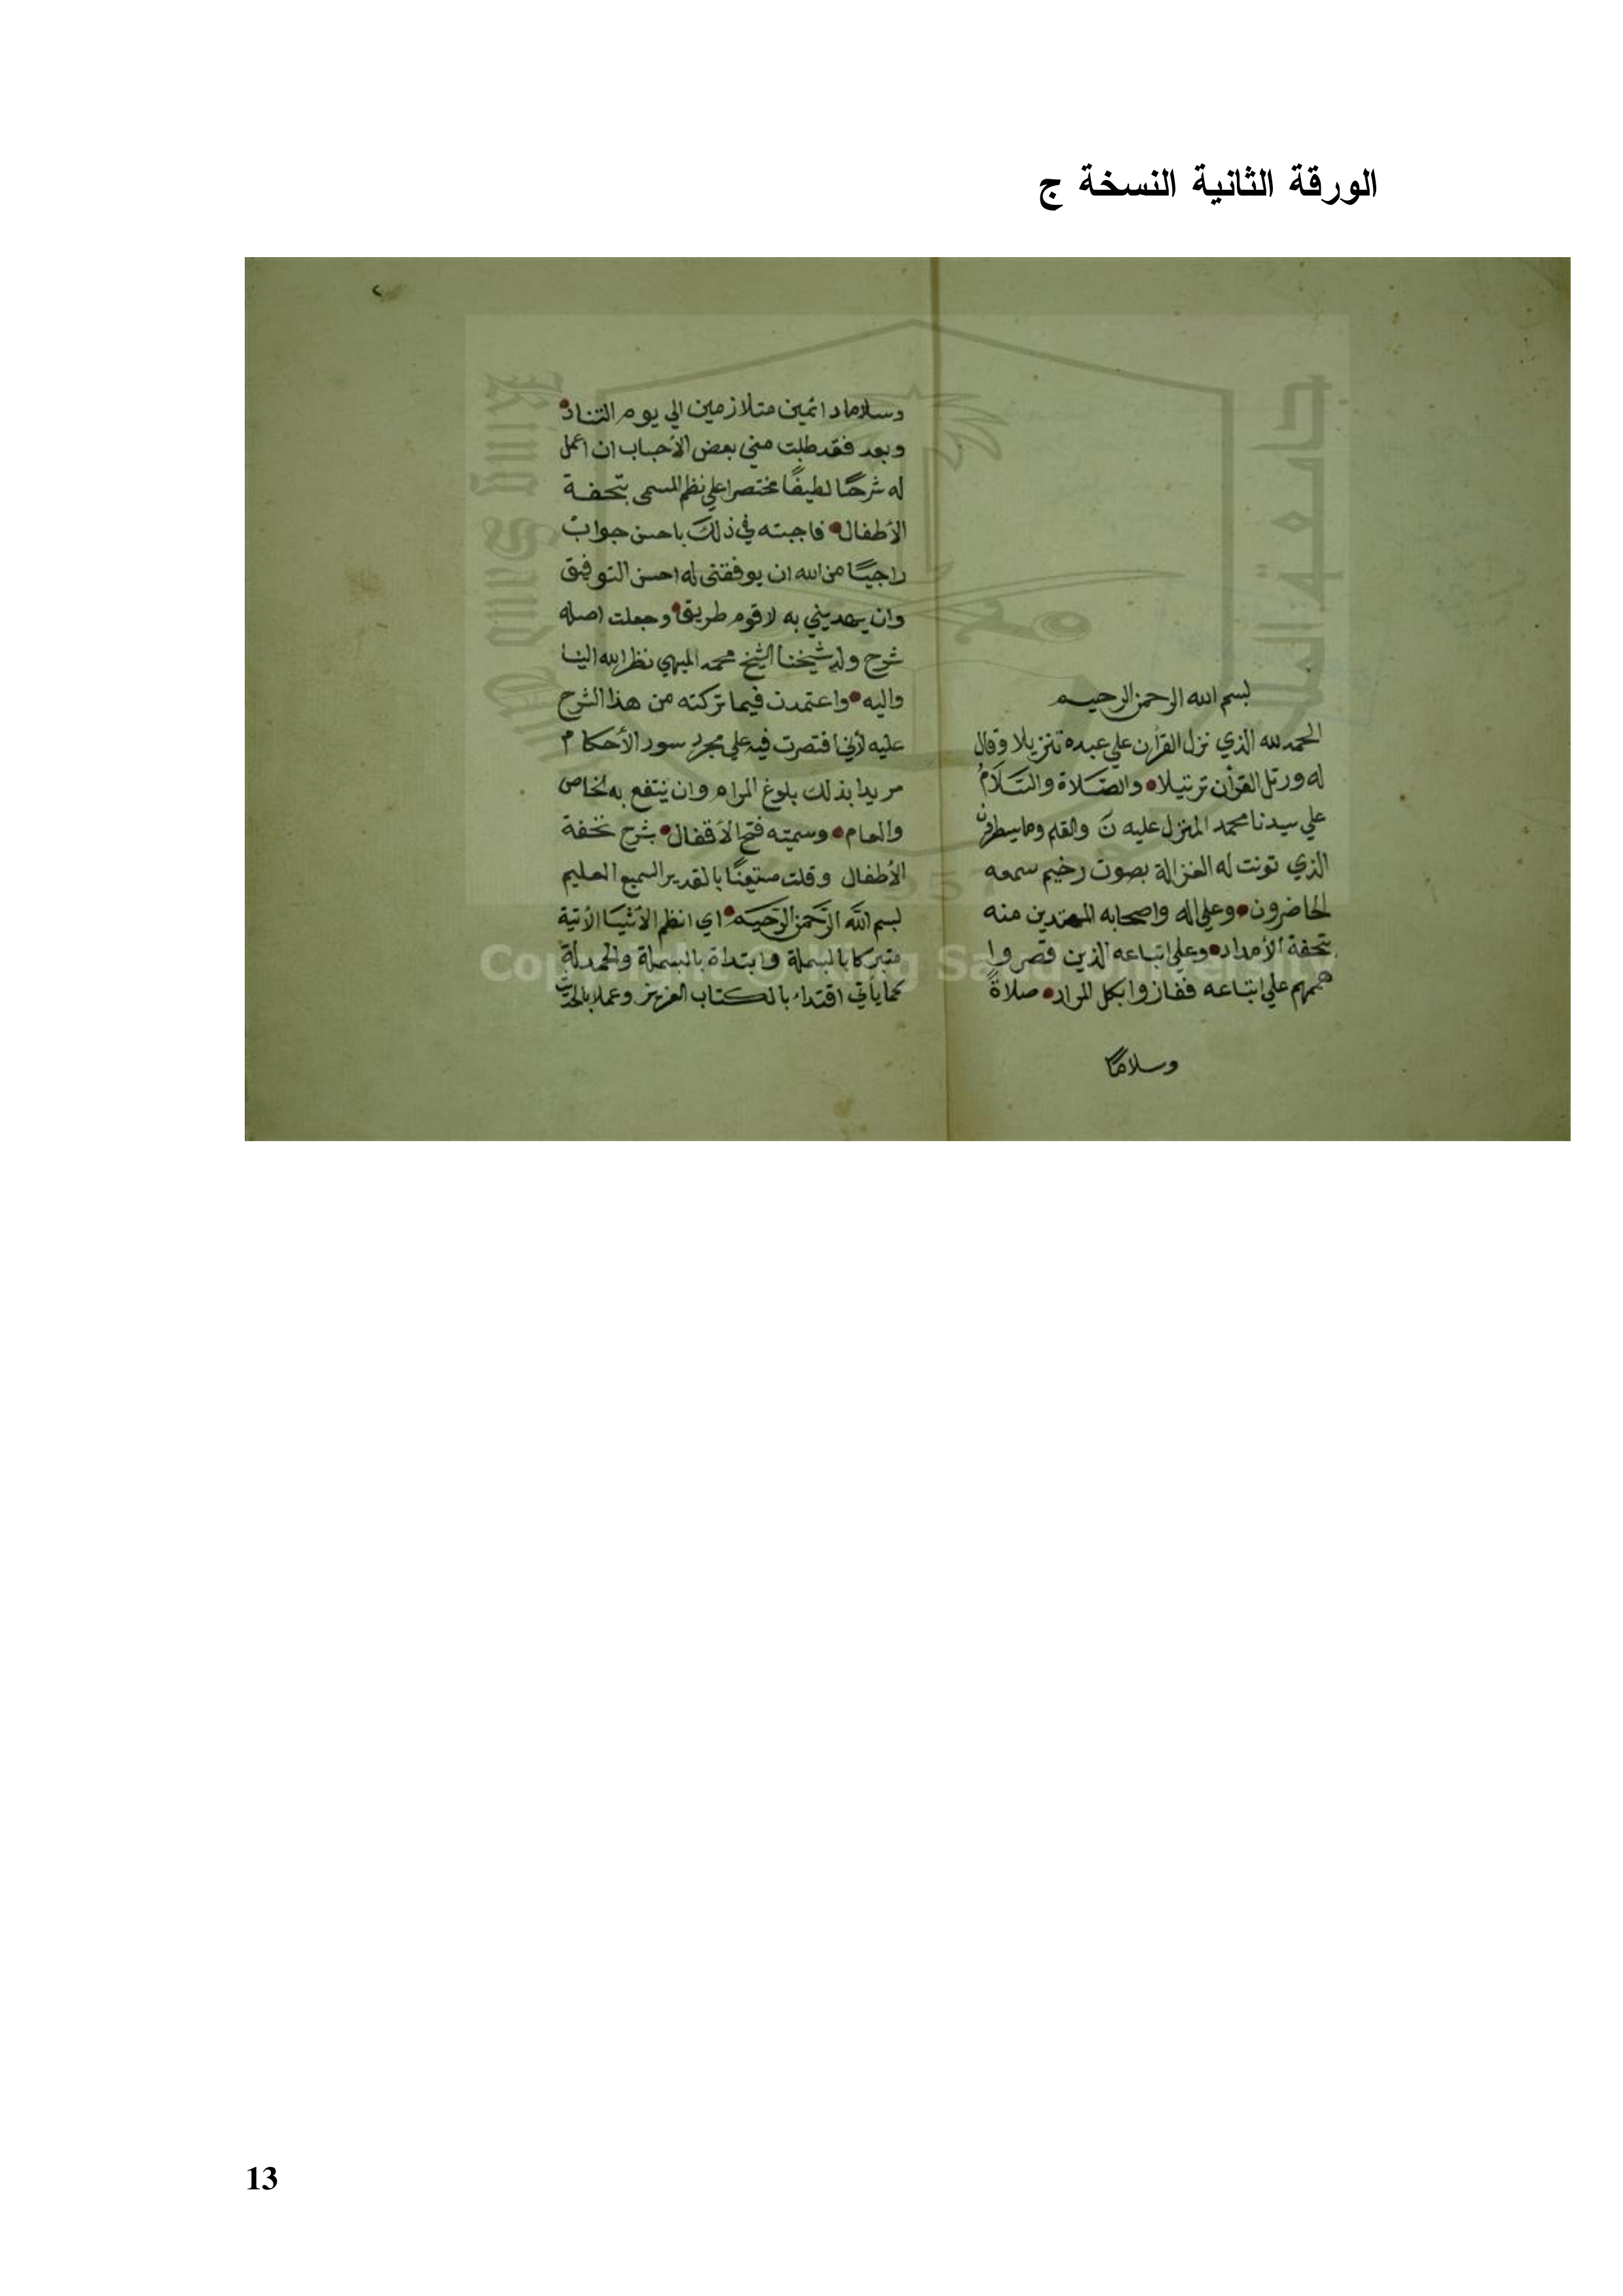 الورقة الثانية النسخة ج
بسم الله الرحمن الرحيم
الحمد لله الذي نزل القرآن علي عبده تنزيلا وقال
له ورتل القرآن ترتيلا والصَّلاة والسَّلامُ
علي سيدنا محمد المنزل عليه نَ والقلم وما يسطرون
الذي تونت له الغزالة بصوت رخيم سمعه
الحاضرون وعلي اله واصحابه المهتدين منه
بتحفة الأمداد وعلي اتباعه الذين قصروا
هممهم علي اتباعه ففازوا بكل المراد صلاةً
وسلامًا
٢
وسلاما دائمين متلازمين الي يوم التناد
وبعد فقد طلبت مني بعض الأحباب ان اعمل
له شرحًا لطيفًا مختصرا علي نظم المسمي بتحفة
الأطفال فاجبته في ذلك باحسن جواب
راجيًا من الله ان يوفقني له احسن التوفيق
وان يهديني به لاقوم طريق وجعلت اصله
شرح ولد شيخنا الشيخ محمد الميهي نظر الله الينا
واليه واعتمدت فيما تركته من هذا الشرح
عليه لأني اقتصرت فيه علي مجرد سور الأحكام
مريدا بذلك بلوغ المرام وان ينتفع به الخاص
والعام وسميته فتح الأقفال بشرح تحفة
الأطفال وقلت مستعينًا بالقدير السميع العليم
بسم الله الرَّحمن الرَّحيم اي انظم الأشيا الأتية
متبركا بالبسملة وابتداة بالبسملة والحمدلة
كما يأتي اقتداء بالكتاب العزيز وعملا بالحديث
جامعة الملك سعود
King Saud University
1957
Copyright © King Saud University
13